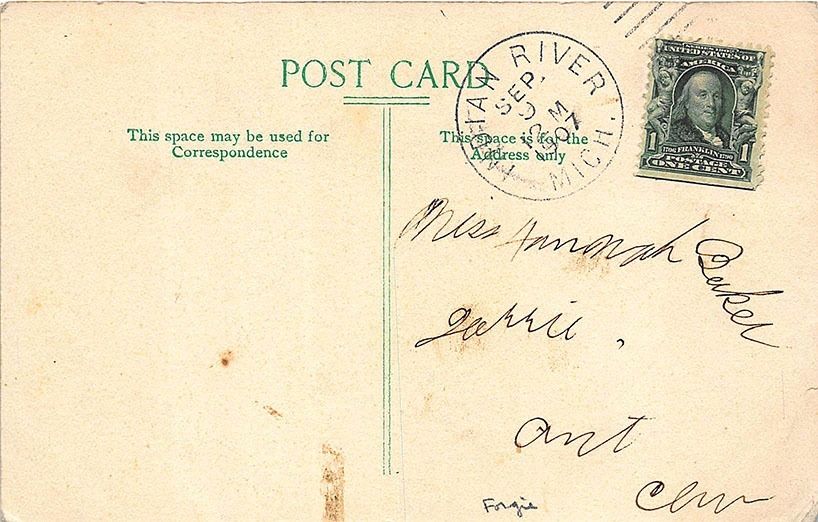 POST CARD
This space may be used for
Correspondence
This space is for the
Address only
INDIAN RIVER
SEP.
9
M
1907
MICH.
SERIES 1902
UNITED STATES OF
AMERICA
1 1
1706 FRANKLIN 1790
POSTAGE
ONE CENT
Miss Hannah Baker
Ont
Forgie